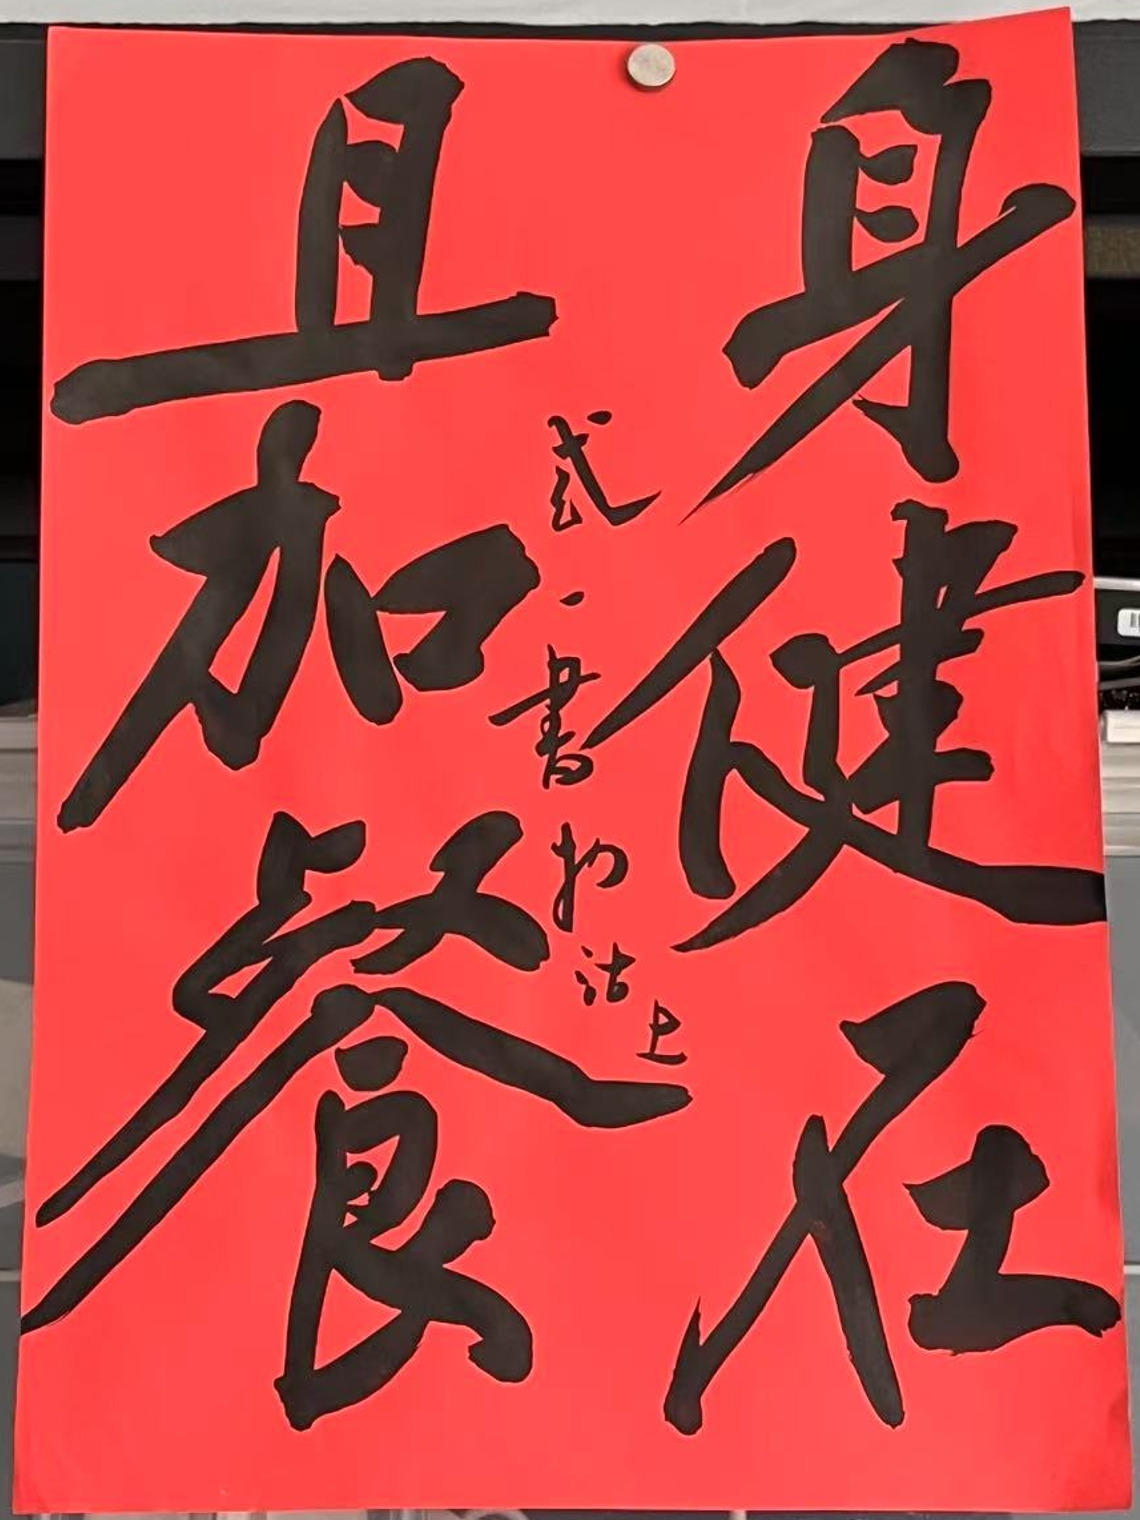 身健在
且加餐
式一書扵沽上